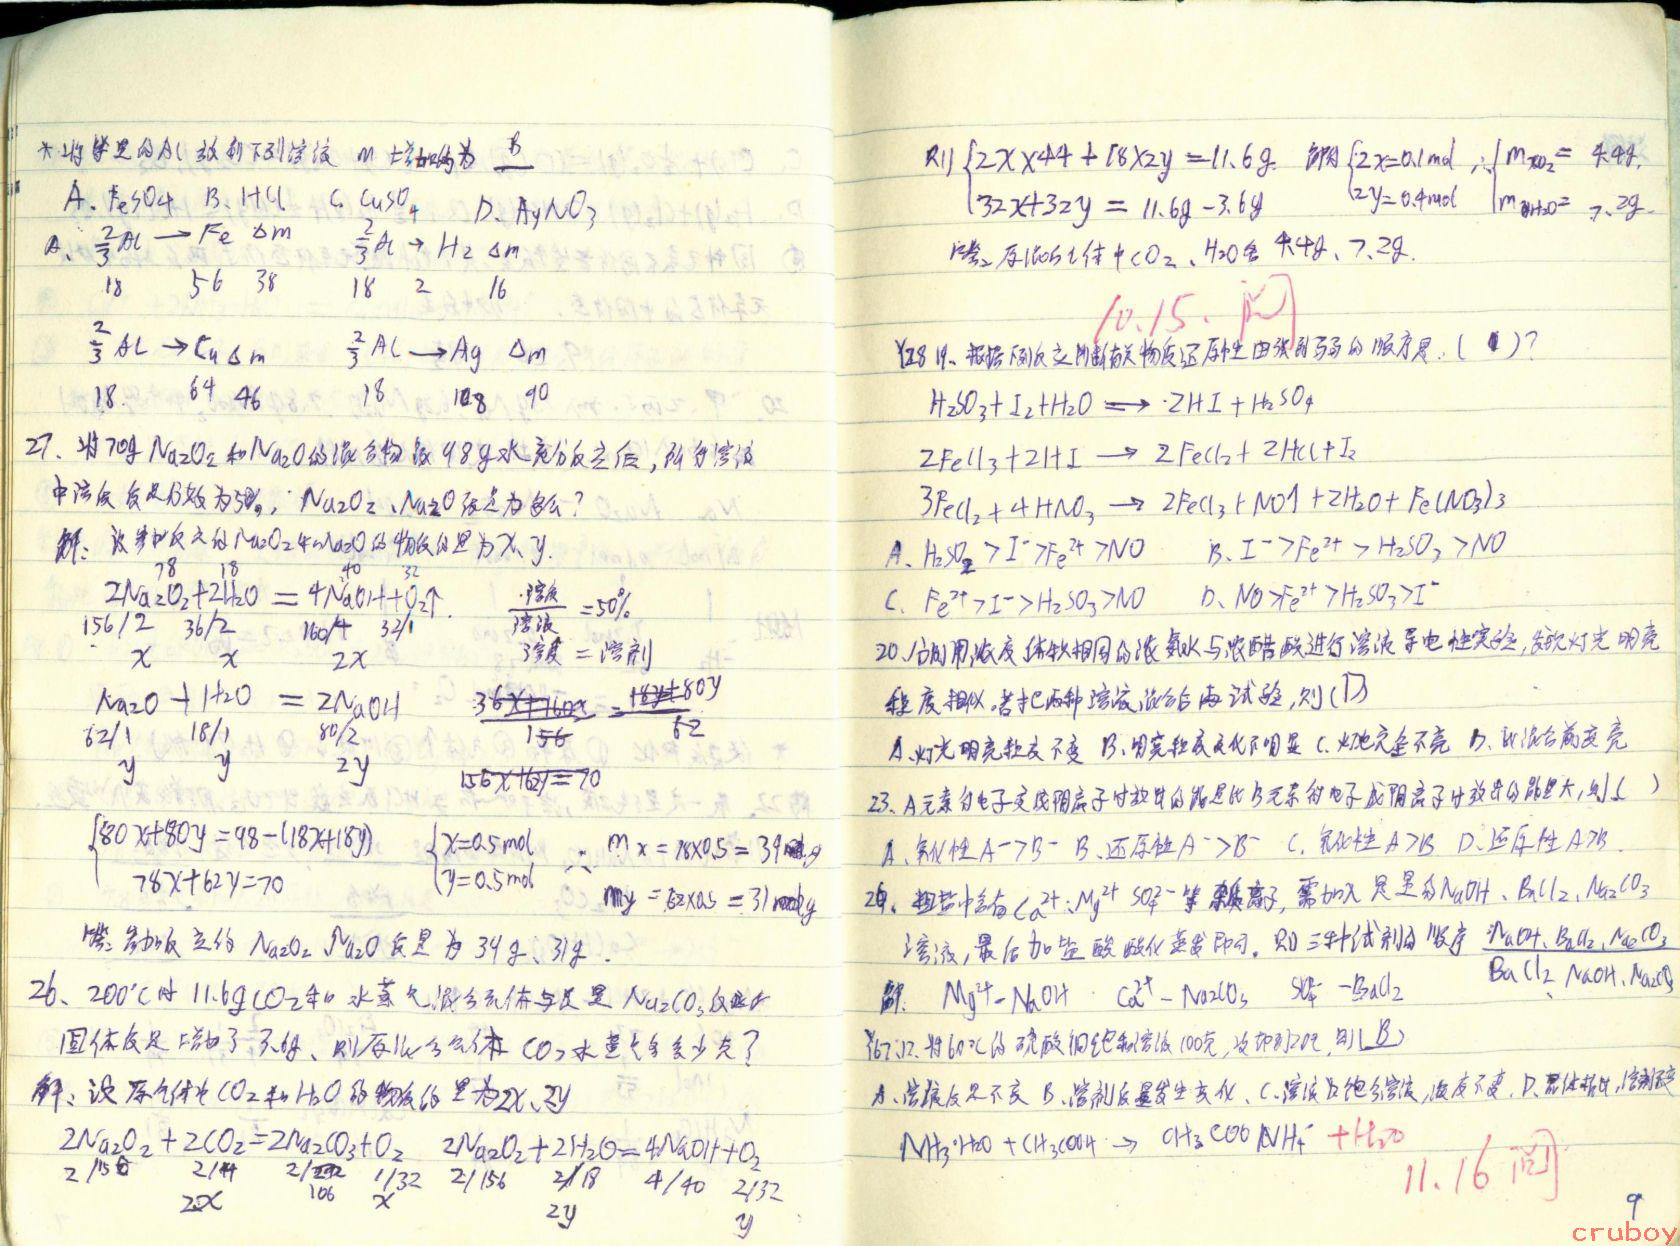 * 将足量的Al放到下列溶液 m 增加的为 B
A. FeSO4 B. HCl C. CuSO4 D. AgNO3
A. 2/3 Al → Fe Δm 2/3 Al → H2 Δm
18 56 38 18 2 16
2/3 Al → Cu Δm 2/3 Al → Ag Δm
18. 64 46 18 108 90
27. 将70g Na2O2和Na2O的混合物放98g水充分反应后,所得溶液
中溶质质量分数为50%,:Na2O2、Na2O质量为多少?
解:设参加反应的Na2O2和Na2O的物质的量为x、y.
78 18 40 32
2Na2O2+2H2O = 4NaOH+O2↑. 溶质/溶液 = 50%
156/2 36/2 160/4 32/1 溶质 = 溶剂
x x 2x
Na2O + H2O = 2NaOH
62/1 18/1 80/2
y y 2y
156x+62y=70
80x+80y=98-(18x+18y) x=0.5mol ∴ mx=78x0.5=39g
78x+62y=70 y=0.5mol my=62x0.5=31g
答:参加反应的Na2O2、Na2O质量为39g、31g.
26、200℃时 11.6g CO2和水蒸气混合气体与足量Na2CO3反应
固体质量增加了3.6g、则原混合气体CO2水蒸气各多少克?
解:设原气体中CO2和H2O的物质的量为2x、2y
2Na2O2+2CO2=2Na2CO3+O2 2Na2O2+2H2O=4NaOH+O2
2/156 2/44 2/106 1/32 2/156 2/18 4/40 2/32
2x x 2y y
则 2x×44+18×2y=11.6g 解得 2x=0.1mol ∴ mCO2=4.4g.
32x+32y=11.6g-3.6g 2y=0.4mol mH2O=7.2g.
答:原混合气体中CO2、H2O各4.4g、7.2g.
10.15.阅
Y28 19、根据下列反应判断有关物质还原性由强到弱的顺序是.( )?
H2SO3+I2+H2O ⟹ 2HI+H2SO4
2FeCl3+2HI → 2FeCl2+2HCl+I2
3FeCl2+4HNO3 → 2FeCl3+NO↑+2H2O+Fe(NO3)3
A. H2SO3>I⁻>Fe2+>NO B. I⁻>Fe2+>H2SO3>NO
C. Fe2+>I⁻>H2SO3>NO D. NO>Fe2+>H2SO3>I⁻
20、分别用浓度体积相同的浓氨水与浓醋酸进行溶液导电性实验,发现灯光明亮
程度相似。若把两种溶液混合后再试验,则(D)
A.灯光明亮程度不变 B.明亮程度变化不明显 C.灯光完全不亮 D.比混合前更亮
23、A元素得电子变成阴离子时放出的能量比B元素得电子成阴离子时放出的能量大,则( )
A、氧化性A⁻>B⁻ B、还原性A⁻>B⁻ C、氧化性A>B D、还原性A>B.
24、粗盐中含有Ca2+、Mg2+ SO42-等杂质离子,需加入足量的NaOH、BaCl2、Na2CO3
溶液,最后加盐酸酸化蒸发即可。则三种试剂的顺序 NaOH、BaCl2、Na2CO3
BaCl2、NaOH、Na2CO3
解: Mg2+-NaOH Ca2+-Na2CO3 SO42--BaCl2
Y67.12.将60℃的硫酸铜饱和溶液100克,冷却到20℃,则(B)
A、溶液质量不变 B、溶剂质量发生变化、C、溶液为饱和溶液,浓度不变、D、晶体析出,溶剂不变
NH3·H2O+CH3COOH → CH3COONH4 +H2O
11.16阅
9
cruboy